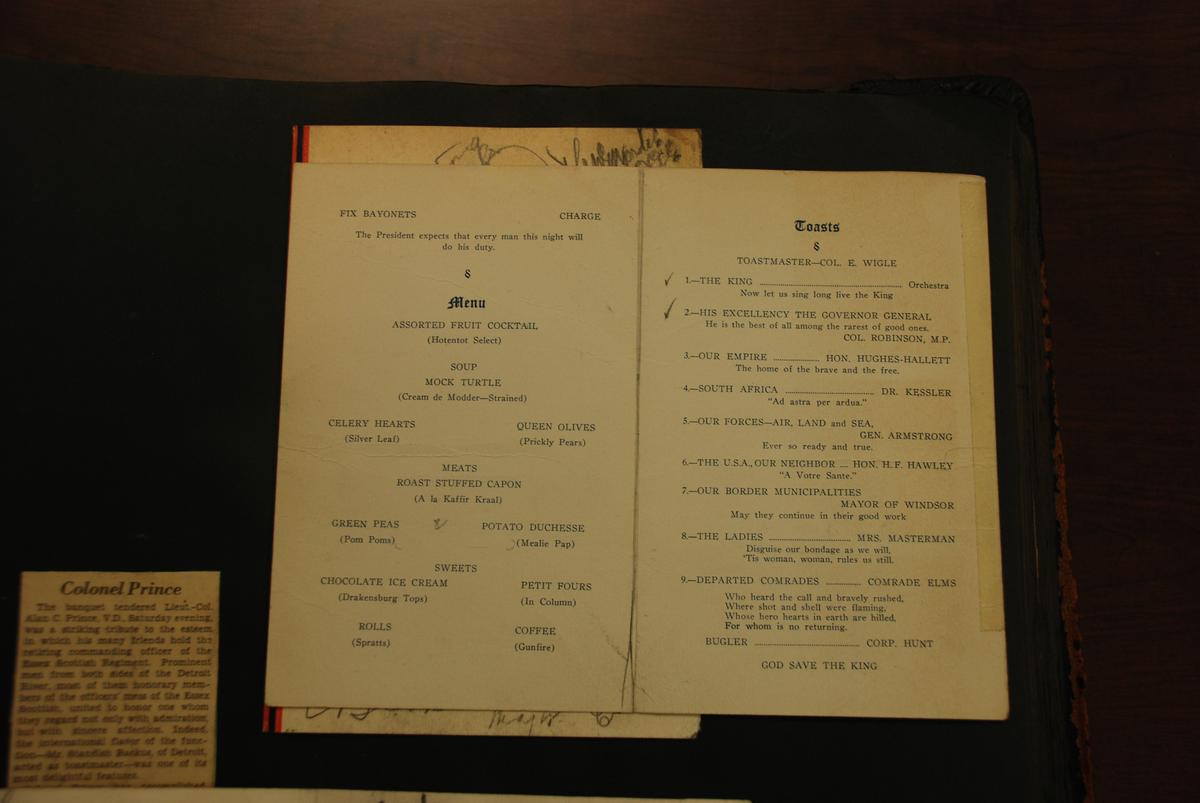 FIX BAYONETS CHARGE
The President expects that every man this night will
do his duty.
§
Menu
ASSORTED FRUIT COCKTAIL
(Hotentot Select)
SOUP
MOCK TURTLE
(Cream de Modder—Strained)
CELERY HEARTS QUEEN OLIVES
(Silver Leaf) (Prickly Pears)
MEATS
ROAST STUFFED CAPON
(A la Kaffir Kraal)
GREEN PEAS POTATO DUCHESSE
(Pom Poms) (Mealie Pap)
SWEETS
CHOCOLATE ICE CREAM PETIT FOURS
(Drakensburg Tops) (In Column)
ROLLS COFFEE
(Spratts) (Gunfire)
Toasts
§
TOASTMASTER—COL. E. WIGLE
1.—THE KING ........ Orchestra
Now let us sing long live the King
2.—HIS EXCELLENCY THE GOVERNOR GENERAL
He is the best of all among the rarest of good ones.
COL. ROBINSON, M.P.
3.—OUR EMPIRE ........ HON. HUGHES-HALLETT
The home of the brave and the free.
4.—SOUTH AFRICA ........ DR. KESSLER
"Ad astra per ardua."
5.—OUR FORCES—AIR, LAND and SEA,
GEN. ARMSTRONG
Ever so ready and true.
6.—THE U.S.A., OUR NEIGHBOR .... HON. H.F. HAWLEY
"A Votre Sante."
7.—OUR BORDER MUNICIPALITIES
MAYOR OF WINDSOR
May they continue in their good work
8.—THE LADIES ........ MRS. MASTERMAN
Disguise our bondage as we will,
'Tis woman, woman, rules us still.
9.—DEPARTED COMRADES ........ COMRADE ELMS
Who heard the call and bravely rushed,
Where shot and shell were flaming,
Whose hero hearts in earth are hilled,
For whom is no returning.
BUGLER ........ CORP. HUNT
GOD SAVE THE KING
Colonel Prince
The banquet tendered Lieut.-Col.
Alan C. Prince, V.D., Saturday evening,
was a striking tribute to the esteem
in which his many friends hold the
retiring commanding officer of the
Essex Scottish Regiment. Prominent
men from both sides of the Detroit
River, most of them honorary mem-
bers of the officers' mess of the Essex
Scottish, united to honor one whom
they regard not only with admiration,
but with sincere affection. Indeed,
the international flavor of the func-
tion—Mr. Standish Backus, of Detroit,
acted as toastmaster—was one of its
most delightful features.